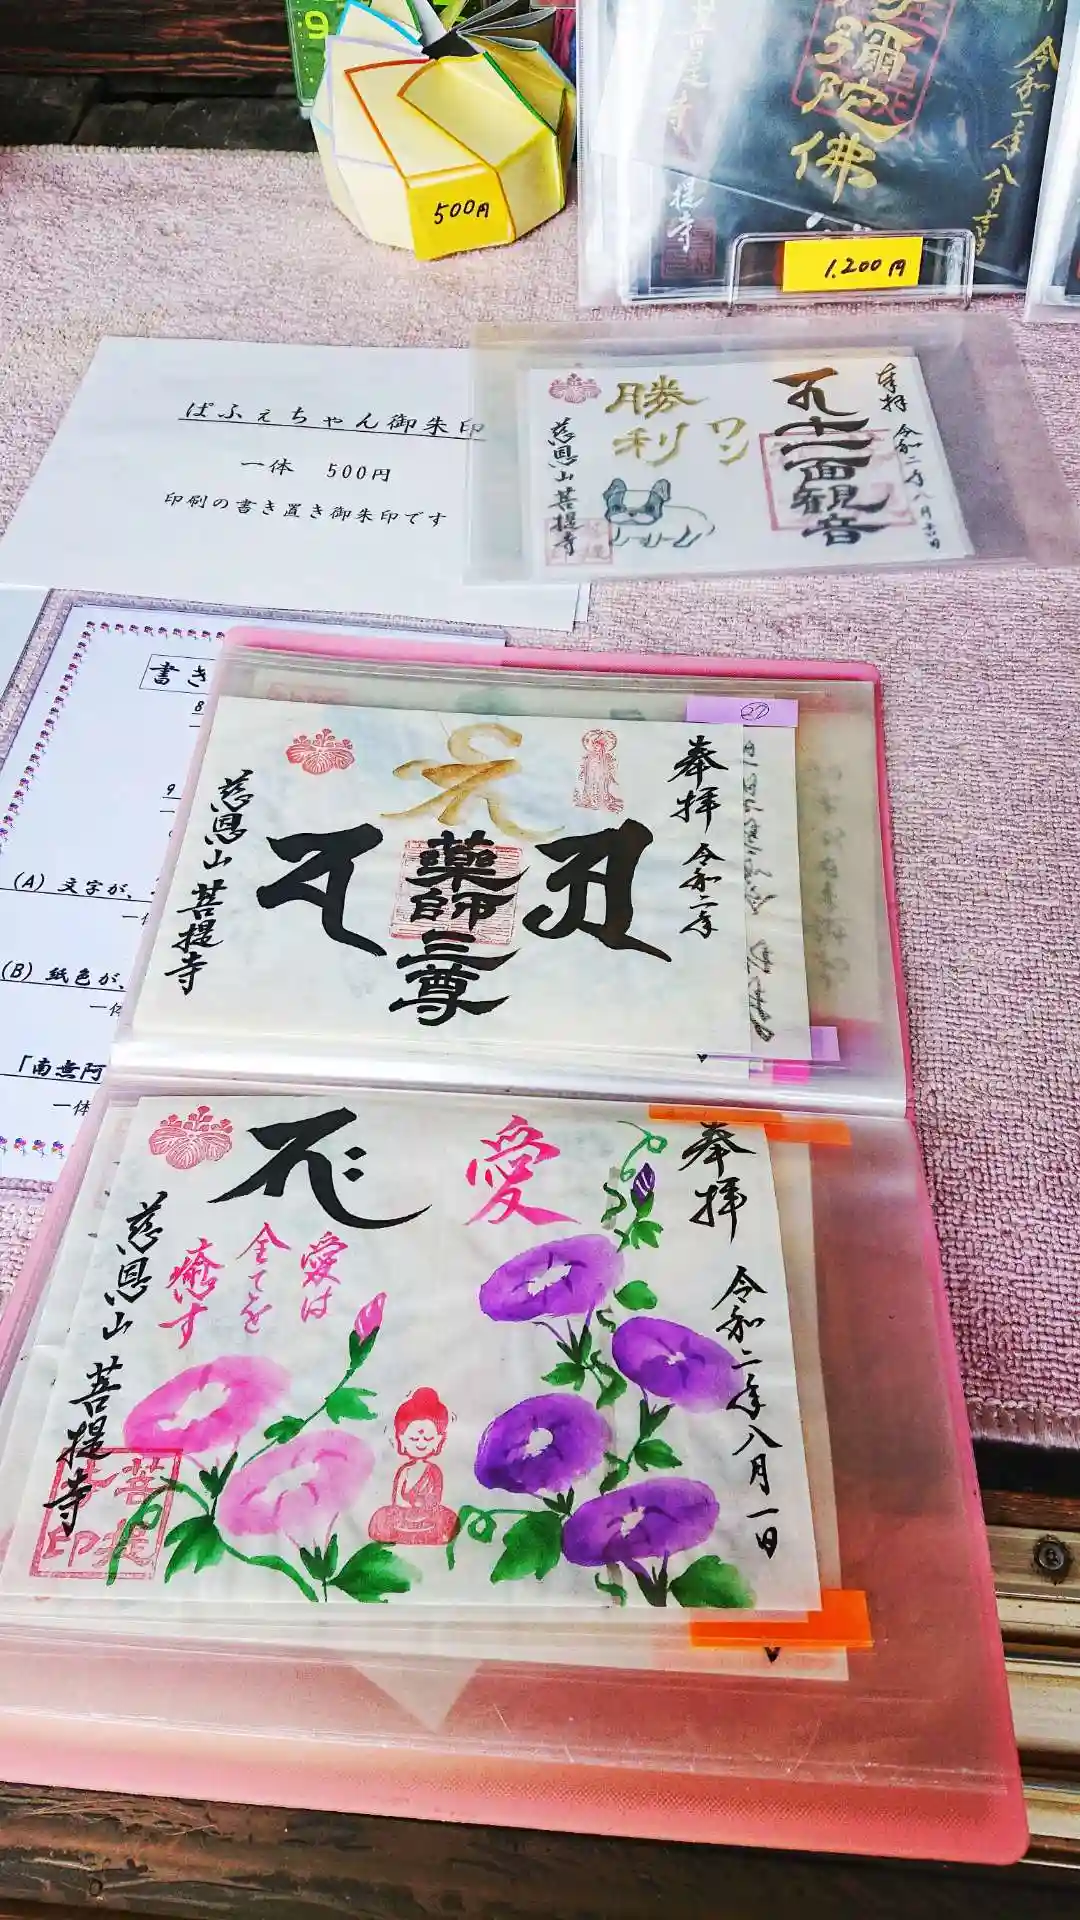 9
500円
彌陀佛
令和二年八月吉日
菩提寺
1,200円
ぱふぇちゃん御朱印
一体 500円
印刷の書き置き御朱印です
奉拝
令和二年八月吉日
十一面観音
ワン
勝利
慈恩山菩提寺
書き
8
9
(A) 文字が、
一体
(B) 紙色が、
一体
「南無阿
一体
27
奉拝
令和二年
薬師三尊
慈恩山 菩提寺
奉拝
令和二年八月一日
愛
愛は
全てを
癒す
慈恩山 菩提寺
菩提
寺印